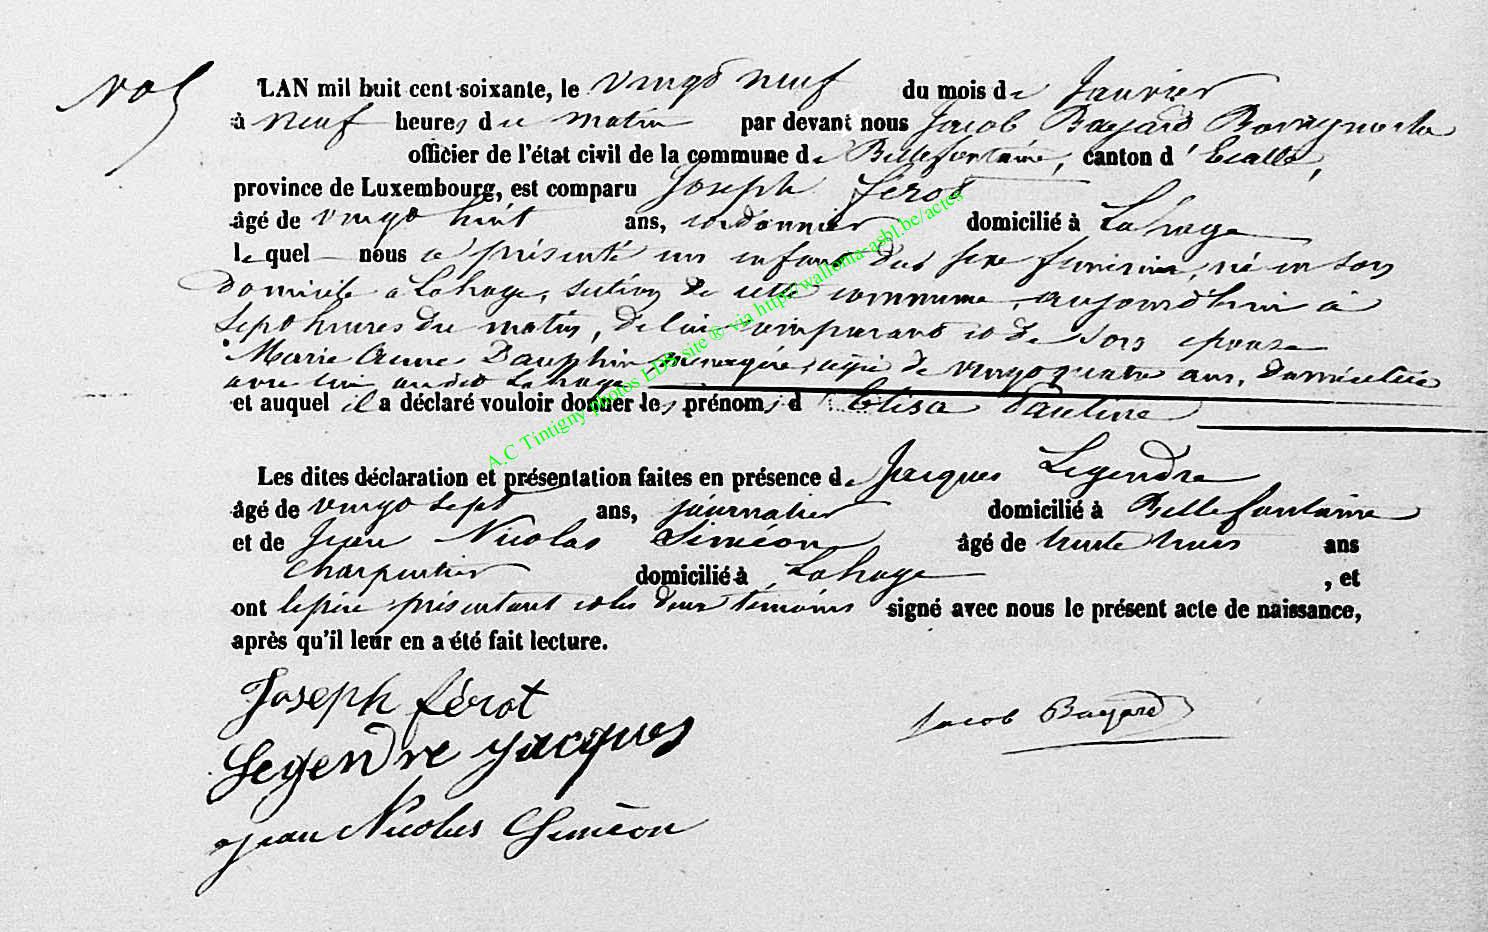 No 5
L'AN mil huit cent soixante, le vingt neuf du mois de Janvier
à neuf heures du matin par devant nous Jacob Bayard Bourgmestre
officier de l'état civil de la commune de Bellefontaine, canton d' Etalle,
province de Luxembourg, est comparu Joseph Férot
âgé de vingt huit ans, cordonnier domicilié à Lahage
lequel nous a présenté un enfant du sexe féminin, né en son
domicile a Lahage, section de cette commune, aujourd'hui à
sept heures du matin, de lui comparant et de son epouse
Marie Anne Dauphin ménagère, agée de vingt quatre ans, domiciliée
avec lui audit Lahage
et auquel il a déclaré vouloir donner les prénoms d Elisa Pauline
Les dites déclaration et présentation faites en présence de Jacques Legendre
âgé de vingt sept ans, journalier domicilié à Bellefontaine
et de Jean Nicolas Siméon âgé de trente trois ans
charpentier domicilié à Lahage , et
ont le père présentant et les deux témoins signé avec nous le présent acte de naissance,
après qu'il leur en a été fait lecture.
Joseph férot
Jacob Bayard
Legendre Jacques
Jean Nicolas Siméon
A.C Tintigny photos LDS site ® via http//wallonia-asbl.be/actes